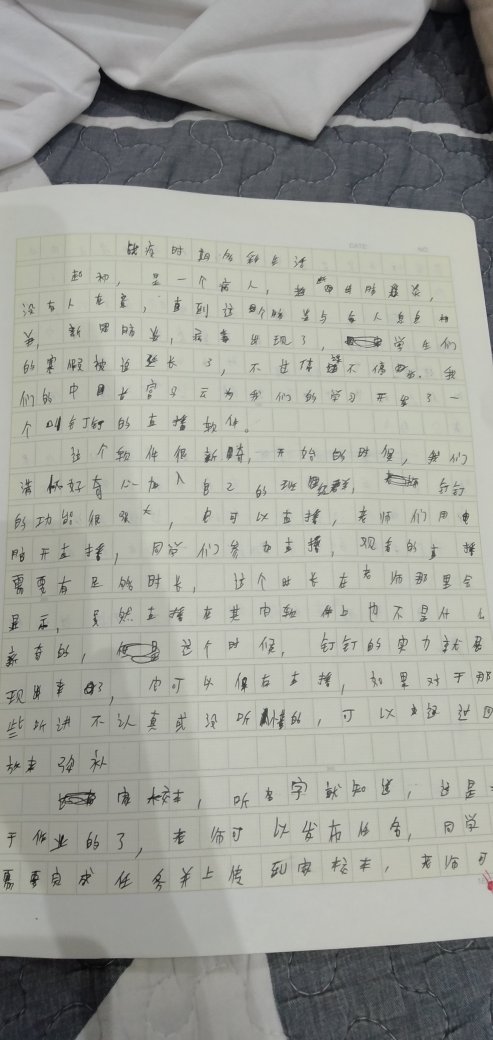 战疫时期的新生活
DATE NO
起初，是一个病人，
没有人在意，直到这个肺炎与每人息息相
关，新冠肺炎，病毒出现了，学生们
的寒假被迫延长了，不过停课不停学。我
们的为我们的学习开发了一
个叫钉钉的直播软件。
这个软件很新奇，开始的时候，我们
满怀好奇心加入自己的班级群，钉钉
的功能很强大，也可以直播，老师们用电
脑开直播，同学们参加直播，观看的直播
需要有足够时长，这个时长在老师那里会
显示，虽然直播在其中软件上也不是什么
新奇的，这个时候，钉钉的实力就展
现出来了，也可以保存直播，如果对于那
些听讲不认真或没听懂的，可以通过回
放来弥补
家校本，听名字就知道，这是
于作业的了，老师可以发布任务，同学
需要完成任务并上传到家校本，老师可